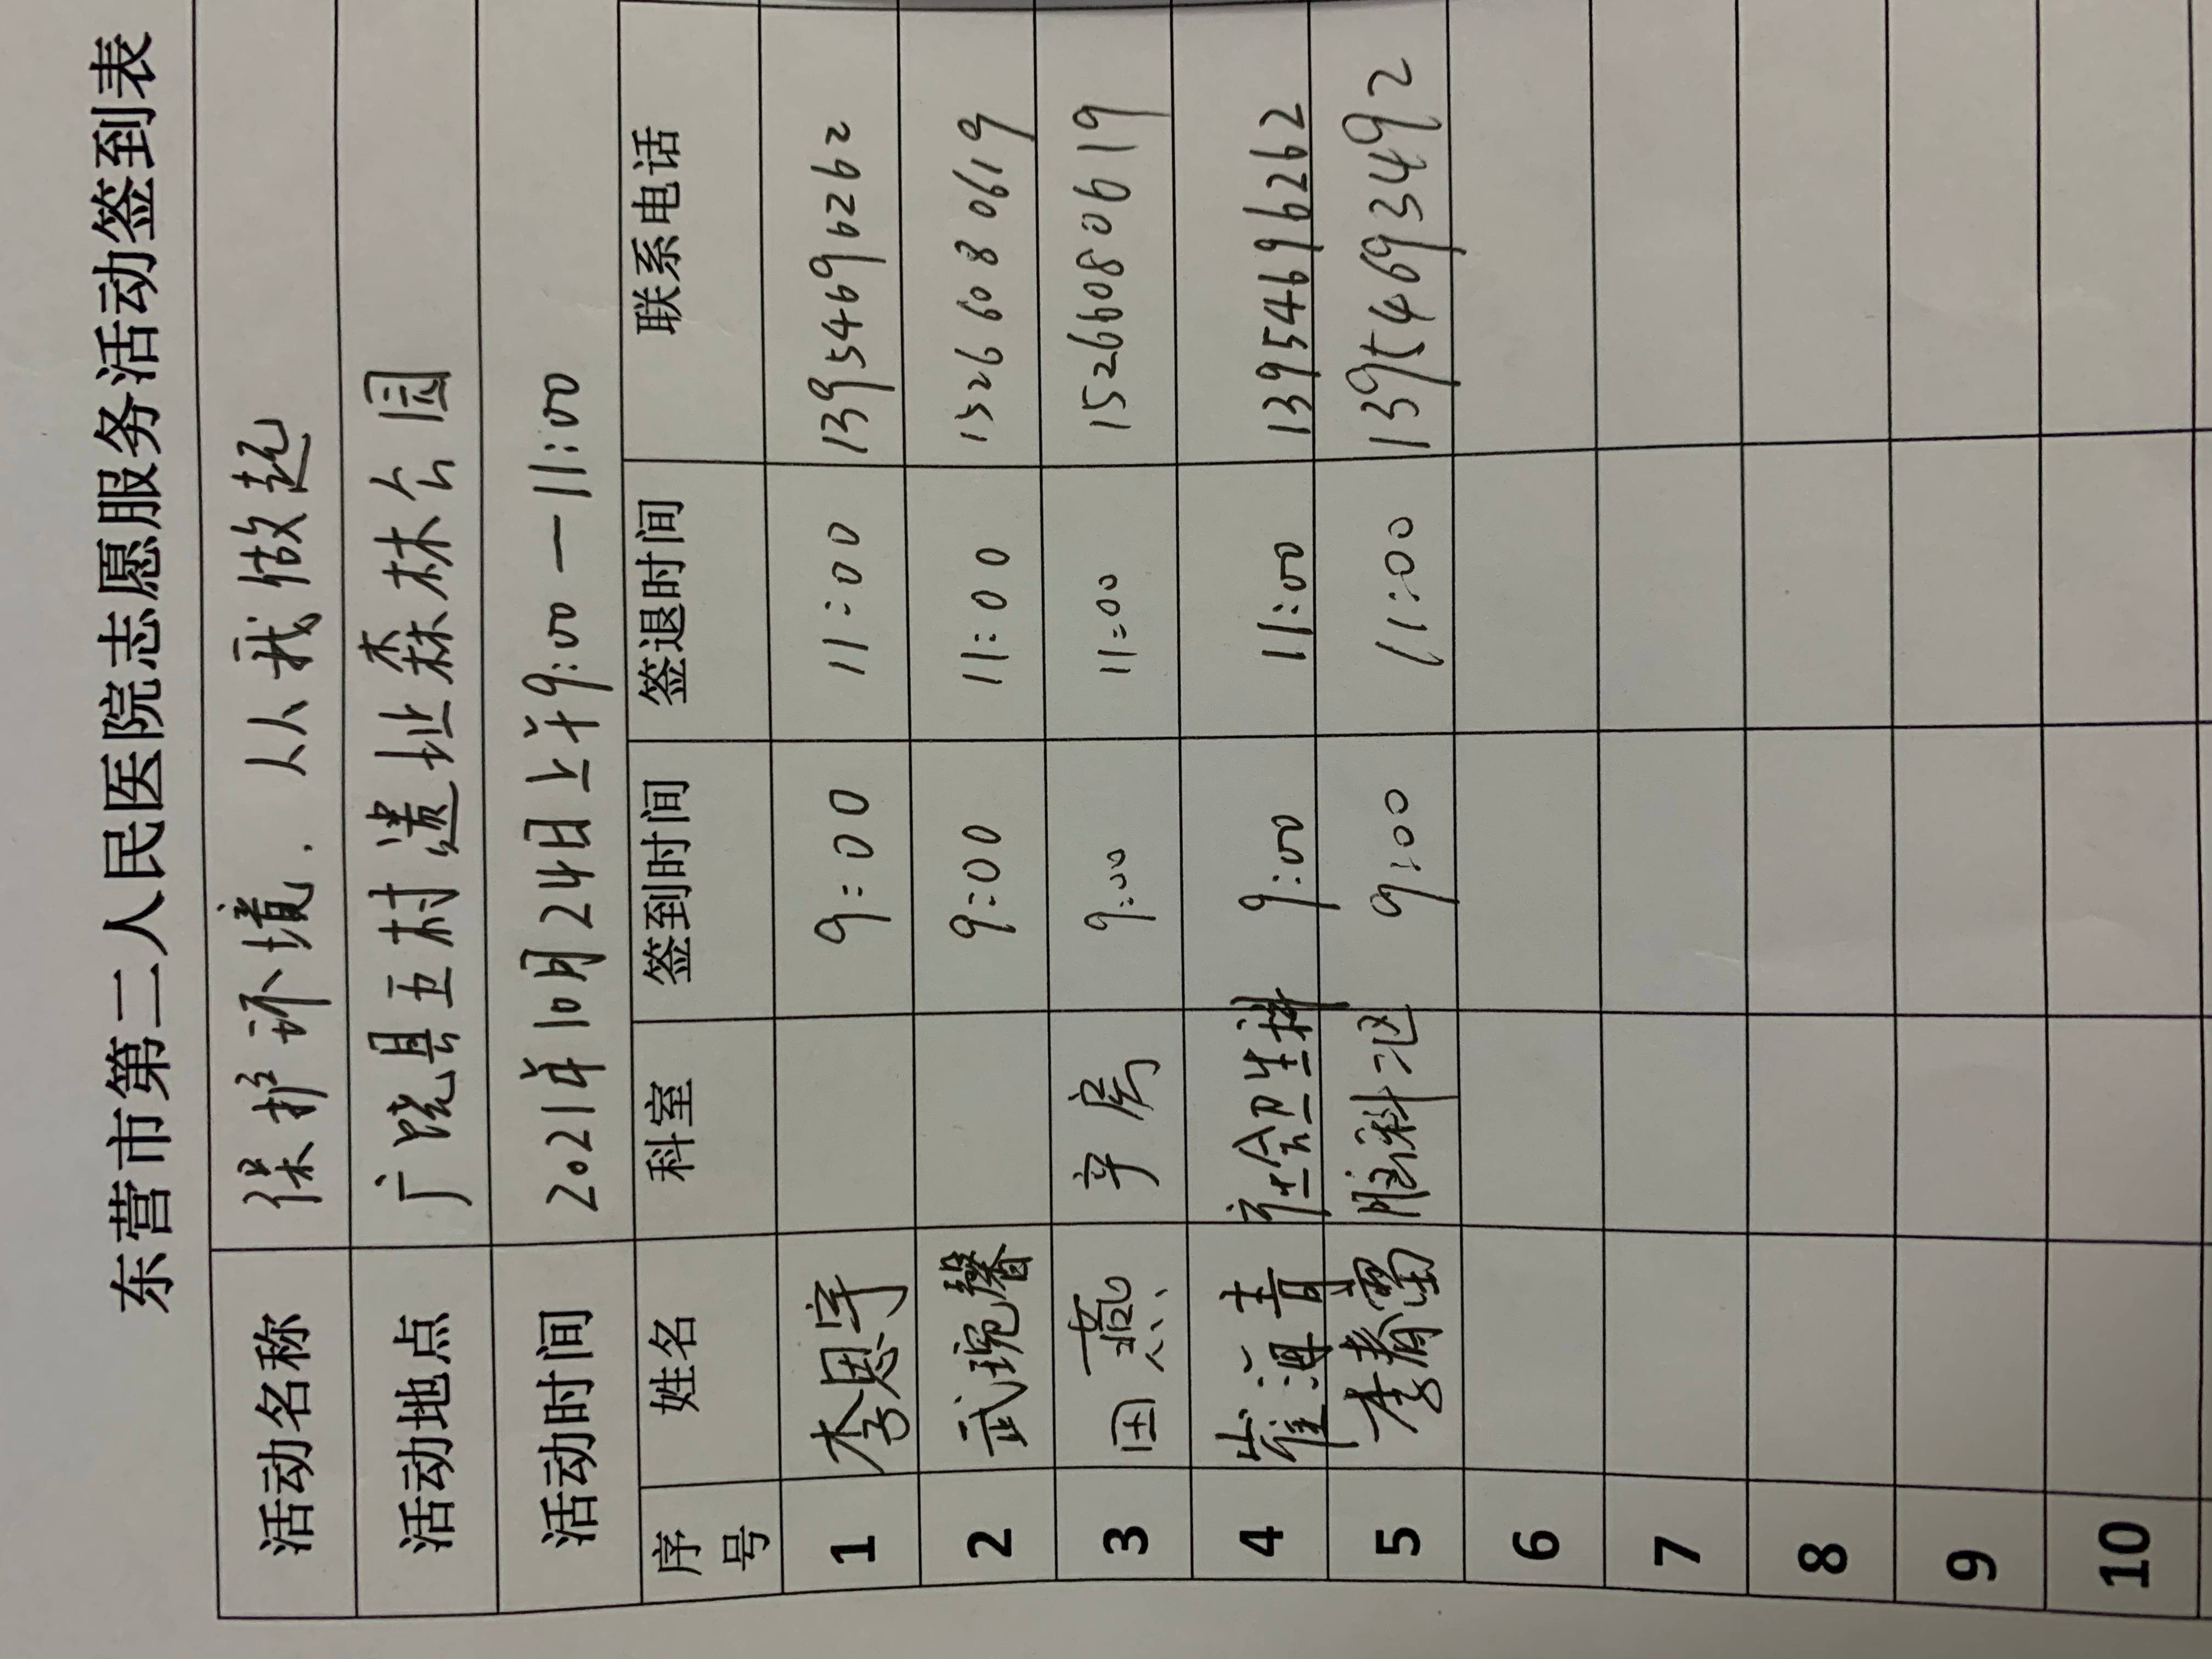 东营市第二人民医院志愿服务活动签到表
活动名称 保护环境，从我做起
活动地点 广饶县五村遗址森林公园
活动时间 2021年10月24日上午9:00—11:00
序号 姓名 科室 签到时间 签退时间 联系电话
1 李恩宇 9:00 11:00 13954696262
2 武琬馨 9:00 11:00 15266080619
3 田燕 9:00 11:00 15266080619
4 崔海青 社会卫生科 9:00 11:00 13954696262
5 李春雷 9:00 11:00 13954693492
6
7
8
9
10